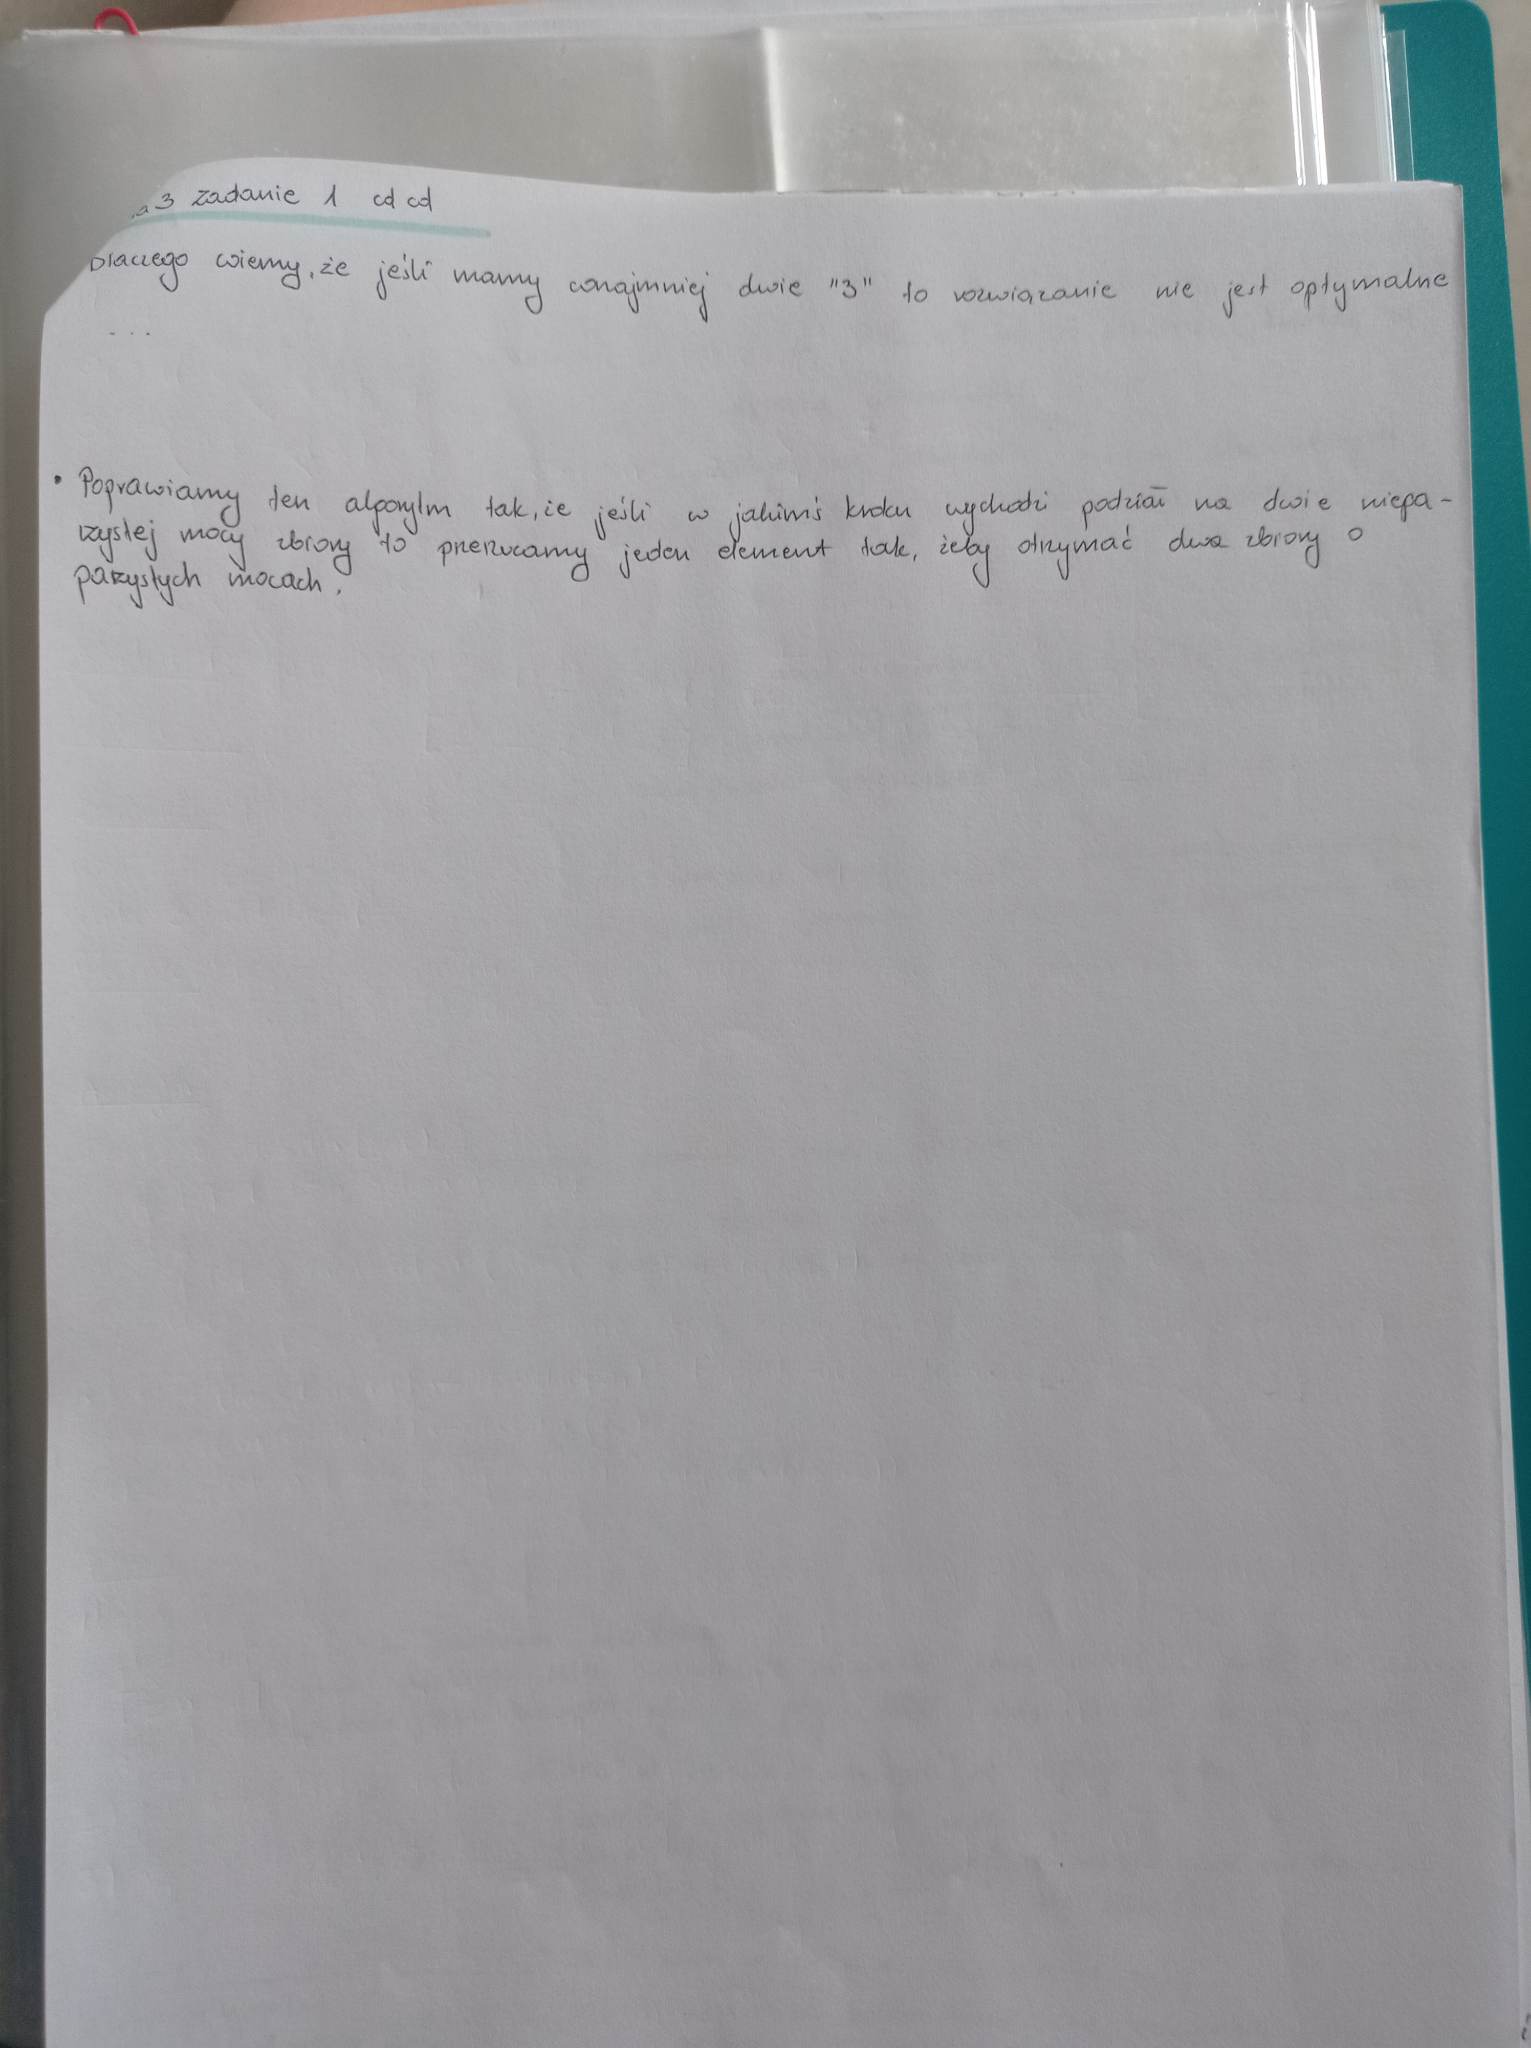 3 zadanie 1 cd cd
Dlaczego wiemy, że jeśli mamy conajmniej dwie "3" to rozwiązanie nie jest optymalne
...
• Poprawiamy ten algorytm tak, że jeśli w jakimś kroku wychodzi podział na dwie niepa-
rzystej mocy zbiory to przerzucamy jeden element tak, żeby otrzymać dwa zbiory o
parzystych mocach.